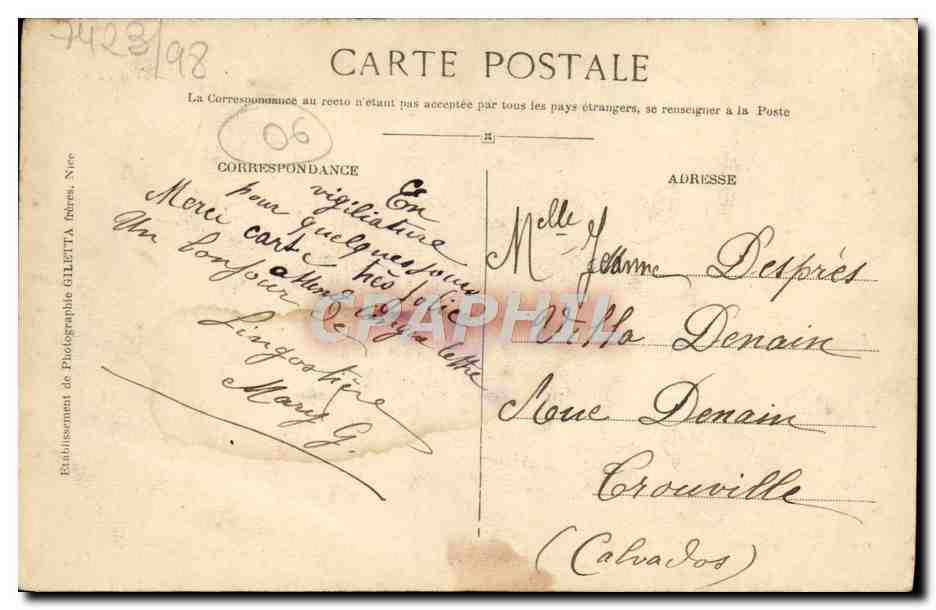 7423/98
CARTE POSTALE
La Correspondance au recto n'étant pas acceptée par tous les pays étrangers, se renseigner à la Poste
06
CORRESPONDANCE
En
vigiliature
pour quelques jours
Merci carte très jolie
attend longue lettre
Un bonjour de
Lingostière
Mary G.
ADRESSE
Melle Jeanne Després
Villa Denain
Rue Denain
Trouville
(Calvados)
Etablissement de Photographie GILETTA frères, Nice
CPAPHIL